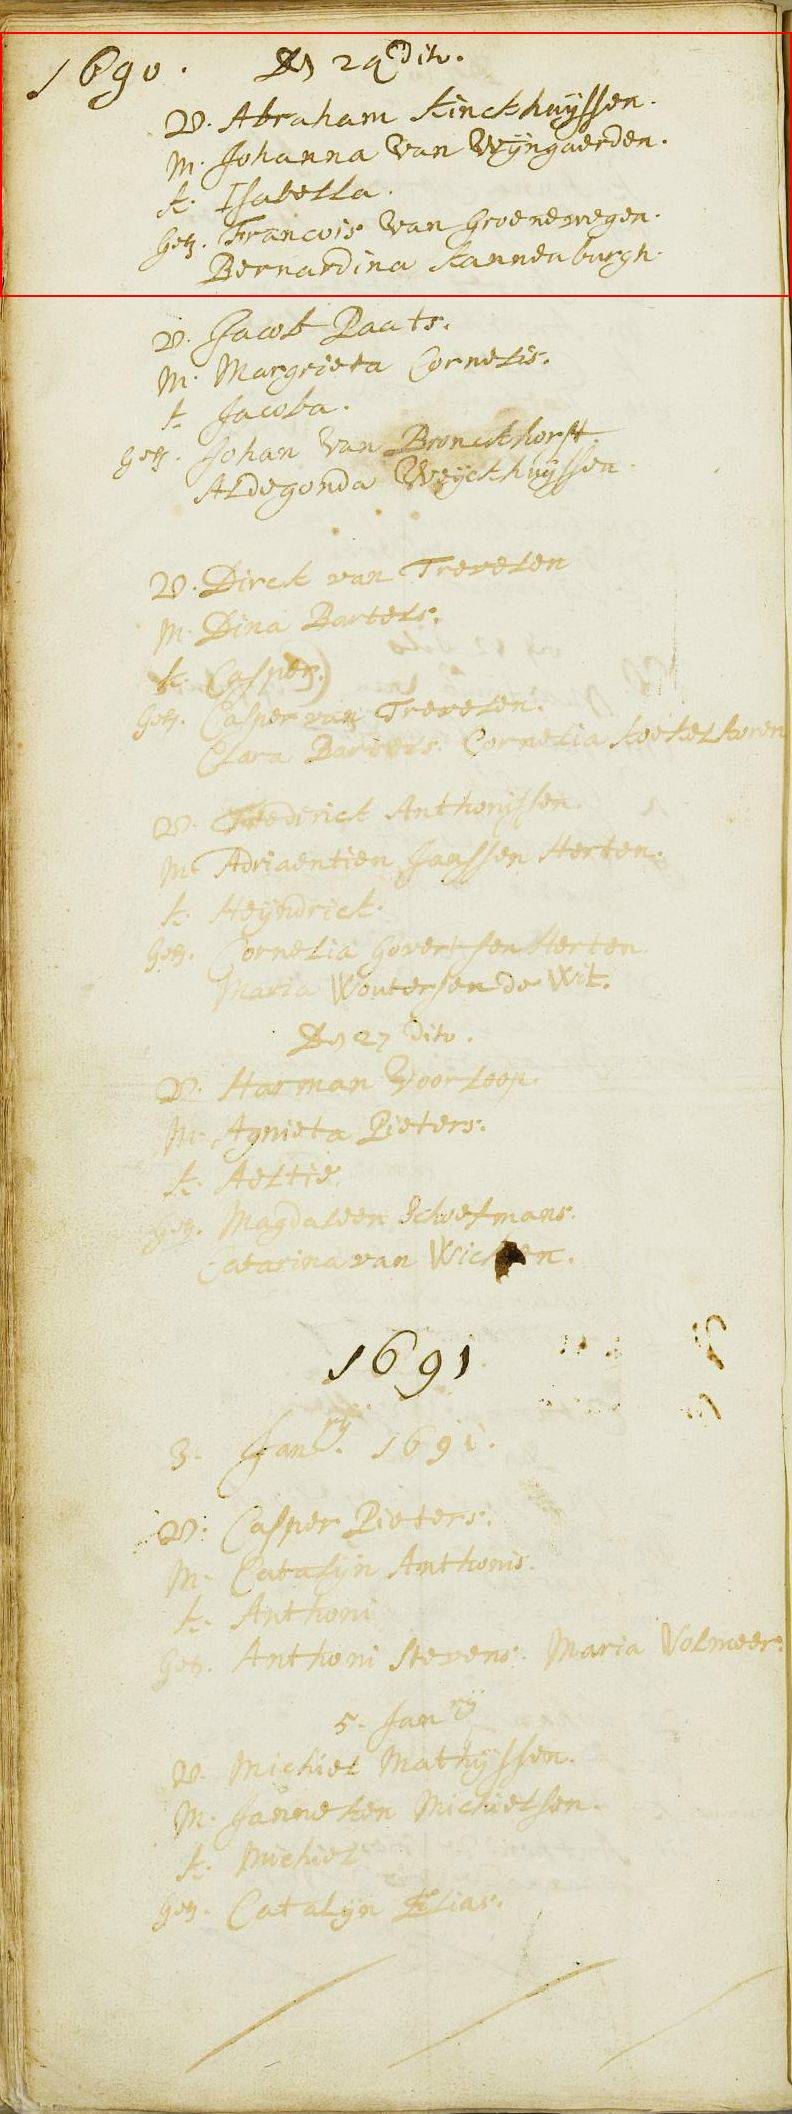 1690. Den 24 dito.
V. Abraham Kinckhuijssen.
M. Johanna Van Wijngaerden.
k. Isabella.
Get. Francois Van Groenewegen.
Bernardina Kannenburgh.
V. Jacob Paats.
M. Margrieta Cornelis.
k. Jacoba.
Get. Johan Van Bronckhorst.
Aldegonda Weijckhuijssen.
V. Dirck van Trevelen
M. Dina Bartels.
k. Casper.
Get. Casper van Trevelen.
Clara Bartels. Cornelia
V. Frederick Anthonissen.
M. Adriaentien Janssen Herten.
k. Heijndrick.
Get. Cornelia Govertsen Herten
Maria Woutersen de Wit.
Den 27 dito.
V. Harman Voorloop.
M. Agnieta Pieters.
k. Aeltie.
Get. Magdaleen Schoefmans.
Catarina van
1691
3. Janrij. 1691.
V. Casper Pieters.
M. Catalijn Anthonis.
k. Anthoni
Get. Anthoni Stevens. Maria Volmeer.
5. Janrij
V. Michiel Mathijssen.
M. Janneken Michielsen.
k. Michiel
Get. Catalijn Elias.